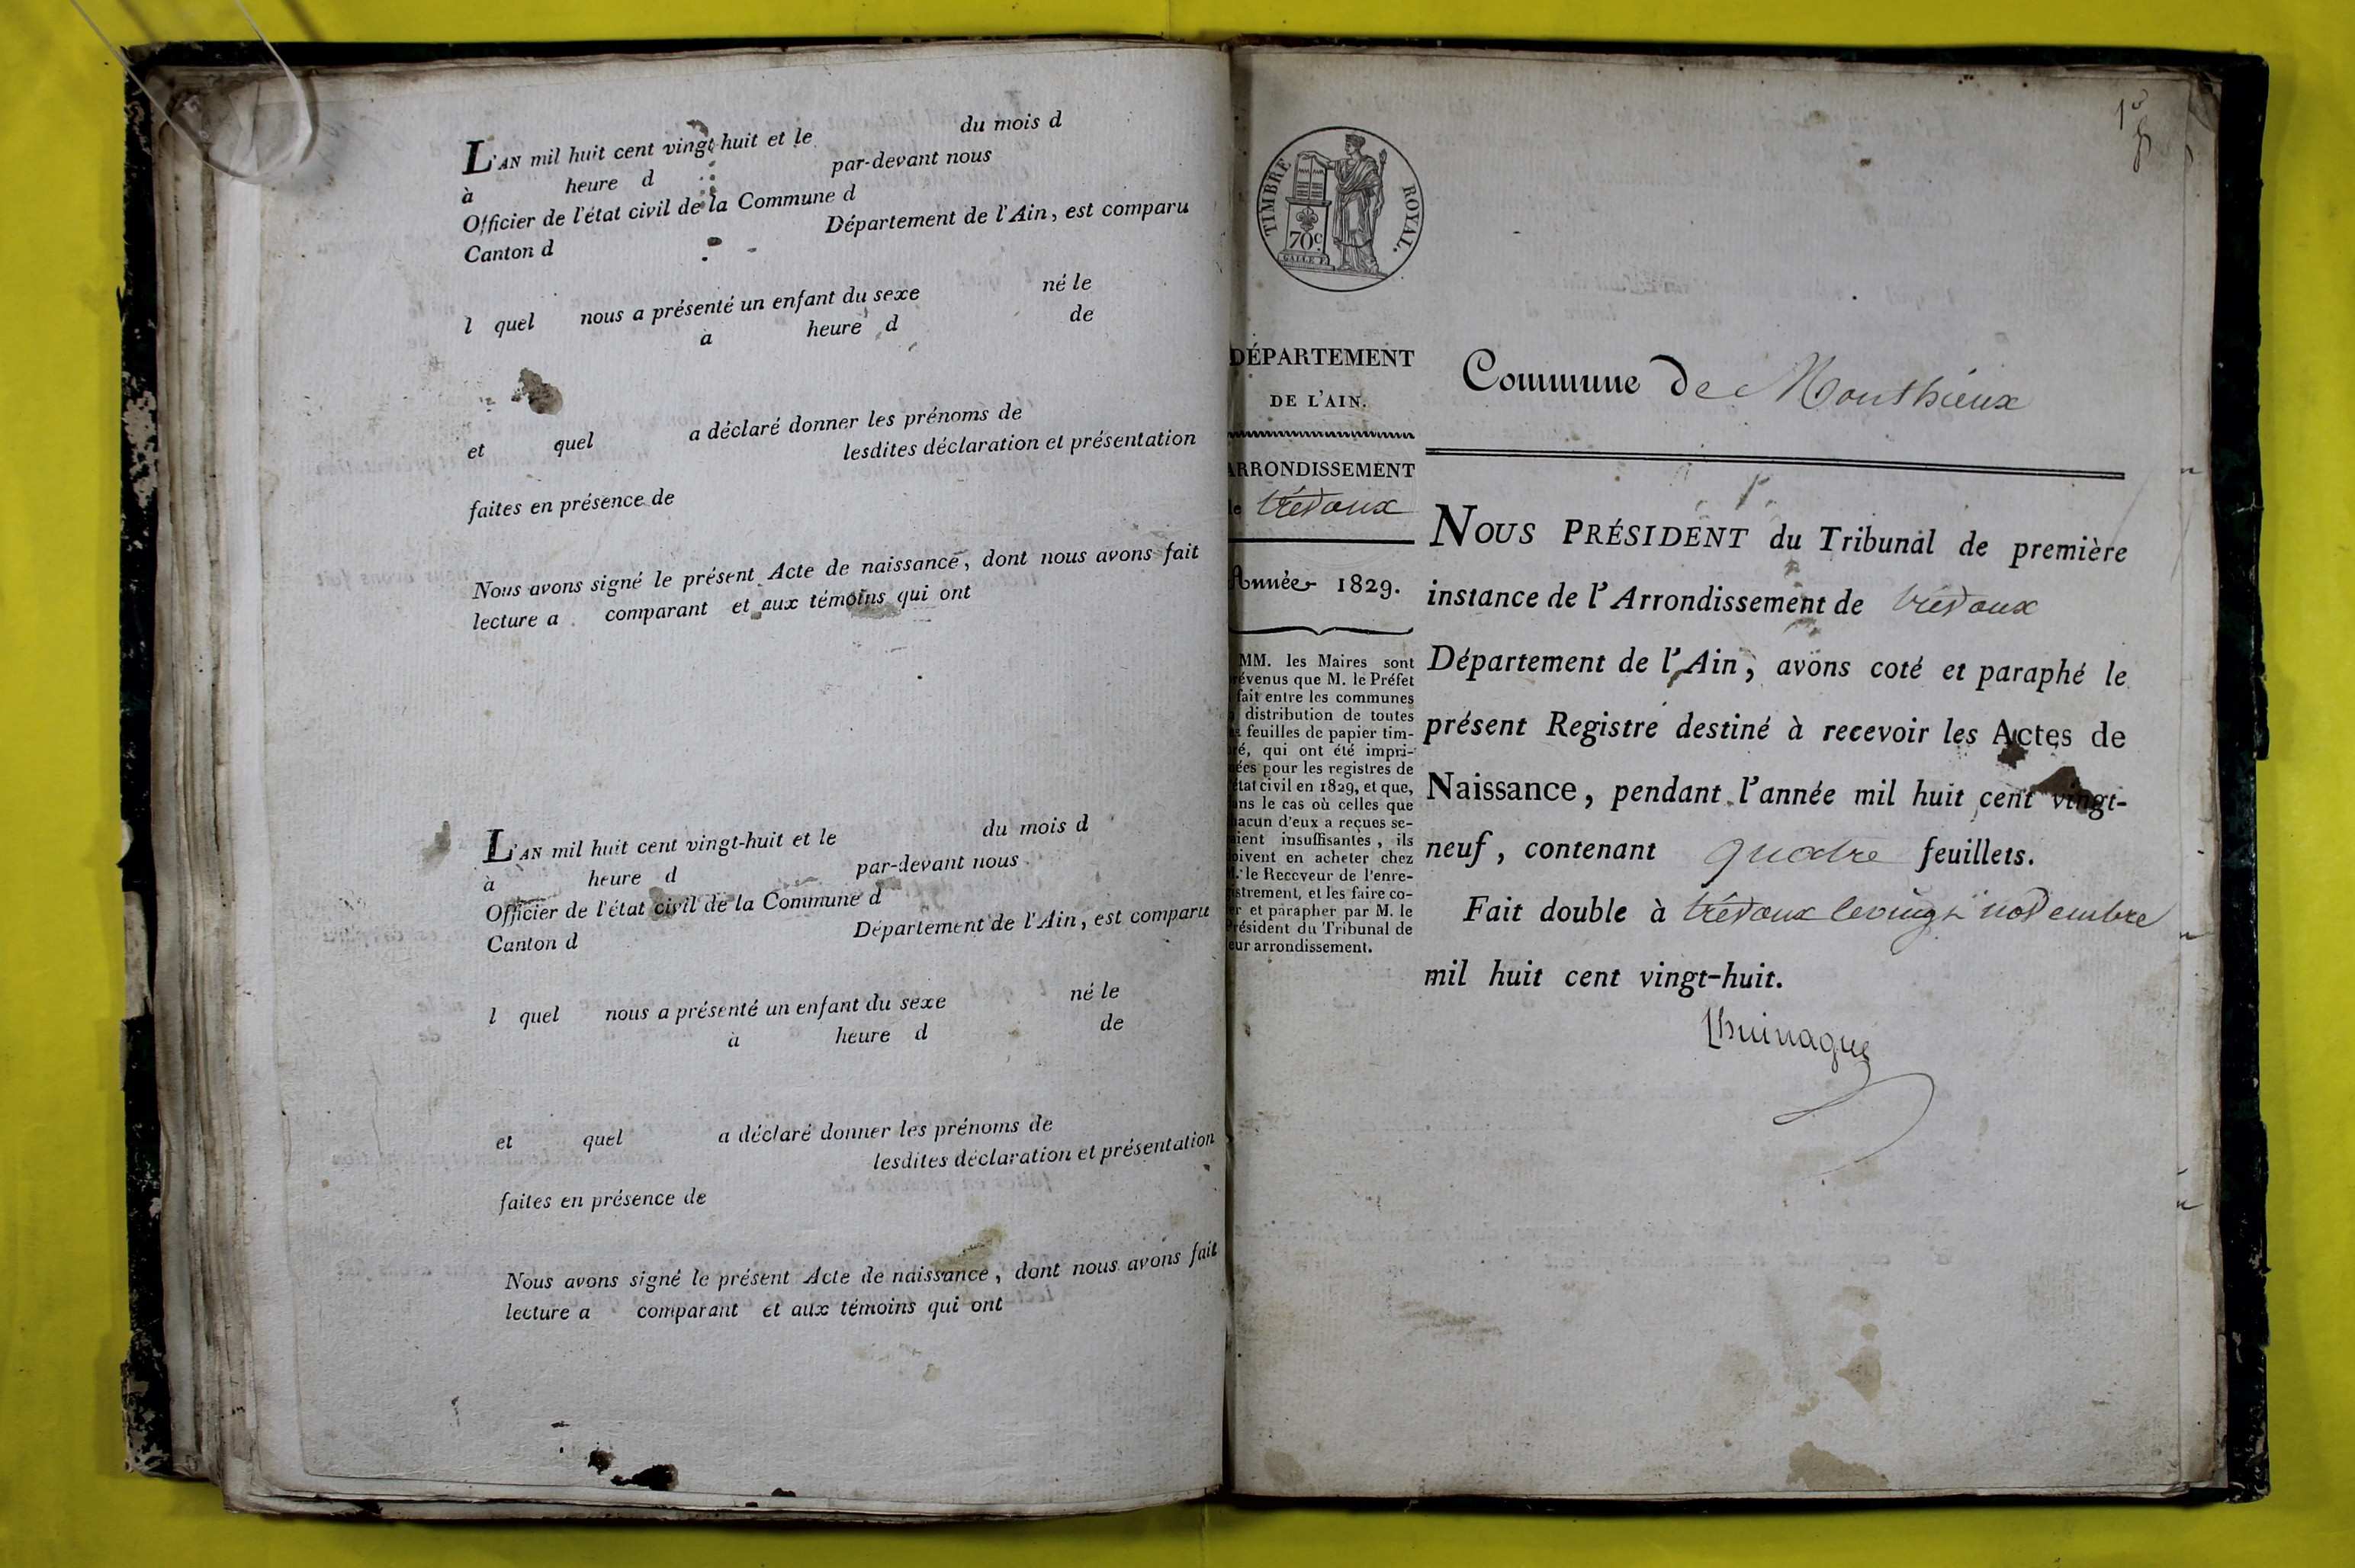 L'AN mil huit cent vingt-huit et le du mois d
à heure d par-devant nous
Officier de l'état civil de la Commune d
Canton d Département de l'Ain, est comparu
l quel nous a présenté un enfant du sexe né le
à heure d de
et quel a déclaré donner les prénoms de
lesdites déclaration et présentation
faites en présence de
Nous avons signé le présent Acte de naissance, dont nous avons fait
lecture a comparant et aux témoins qui ont
L'AN mil huit cent vingt-huit et le du mois d
à heure d par-devant nous
Officier de l'état civil de la Commune d
Canton d Département de l'Ain, est comparu
l quel nous a présenté un enfant du sexe né le
à heure d de
et quel a déclaré donner les prénoms de
lesdites déclaration et présentation
faites en présence de
Nous avons signé le présent Acte de naissance, dont nous avons fait
lecture a comparant et aux témoins qui ont
TIMBRE ROYAL.
70c.
GALLE F.
DÉPARTEMENT
DE L'AIN.
ARRONDISSEMENT
de trévoux
Année 1829.
MM. les Maires sont
prévenus que M. le Préfet
fait entre les communes
distribution de toutes
feuilles de papier tim-
bré, qui ont été impri-
mées pour les registres de
état civil en 1829, et que,
dans le cas où celles que
chacun d'eux a reçues se-
raient insuffisantes, ils
doivent en acheter chez
M. le Receveur de l'enre-
gistrement, et les faire co-
ter et parapher par M. le
Président du Tribunal de
leur arrondissement.
1er
Commune de Monthieux
NOUS PRÉSIDENT du Tribunal de première
instance de l'Arrondissement de trévoux
Département de l'Ain, avons coté et paraphé le
présent Registre destiné à recevoir les Actes de
Naissance, pendant l'année mil huit cent vingt-
neuf, contenant quatre feuillets.
Fait double à trévoux le vingt novembre
mil huit cent vingt-huit.